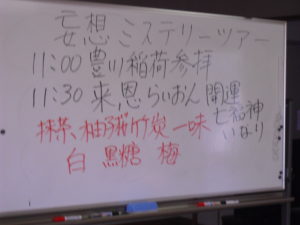 妄想ミステリーツアー
11:00 豊川稲荷参拝
11:30 来,恩,らいおん 開運
七福神
いなり
抹茶、柚子桜竹炭 一味
白 黒糖 梅